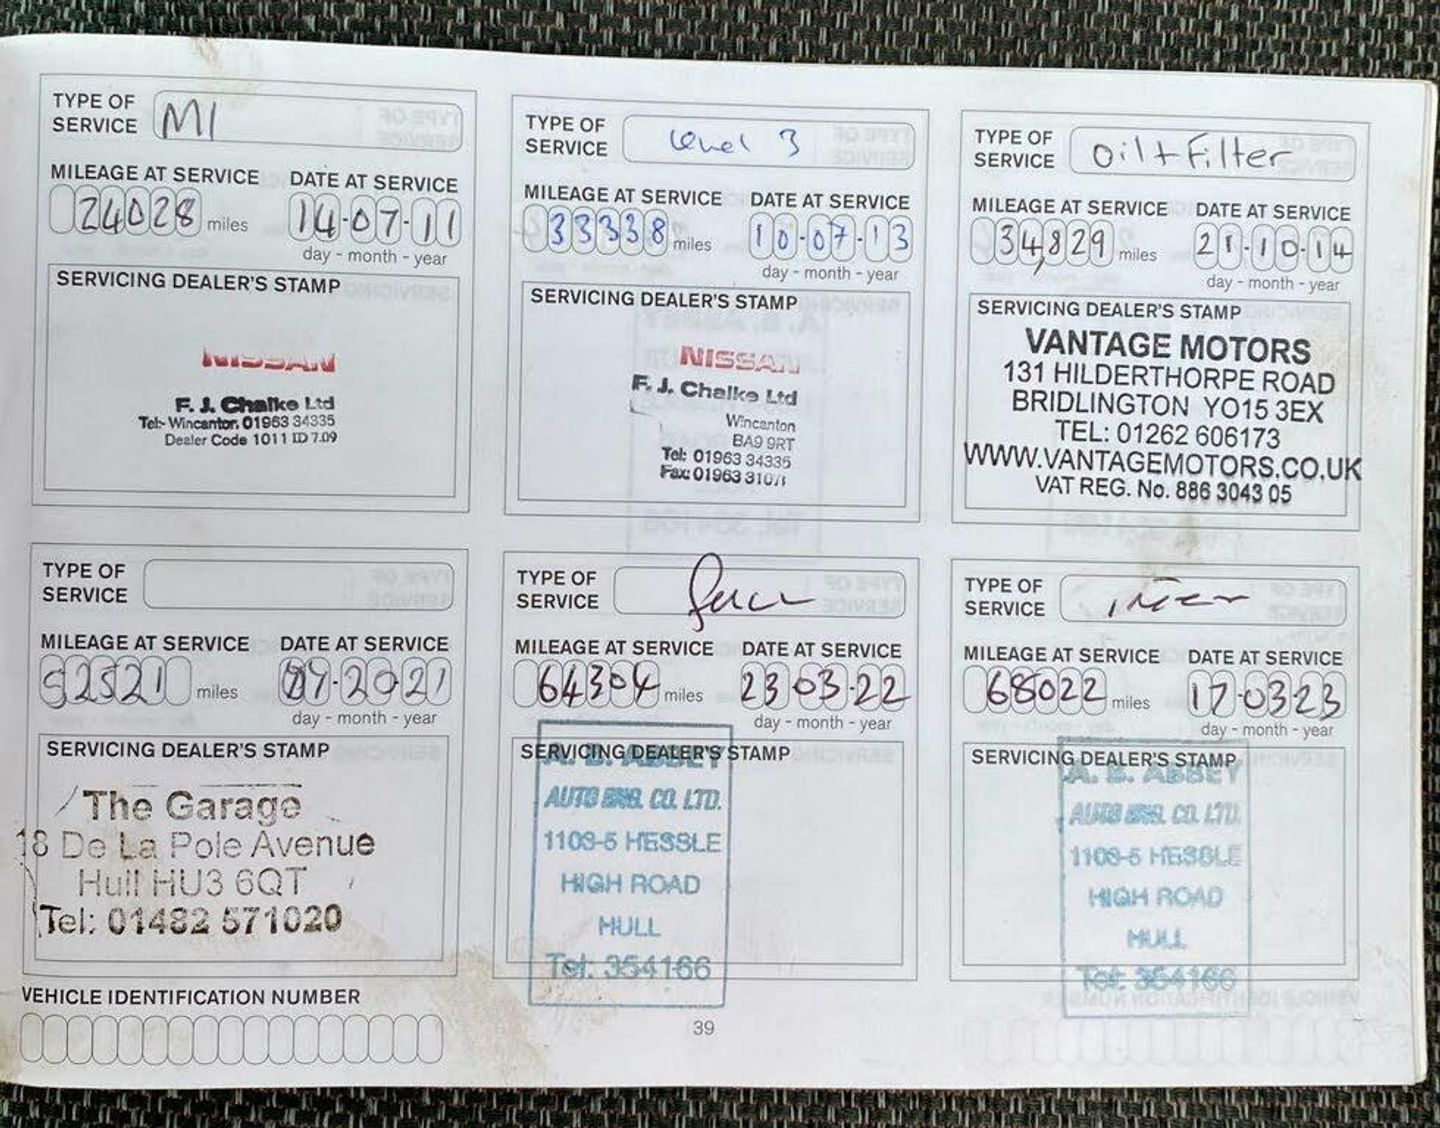 TYPE OF SERVICE M1
MILEAGE AT SERVICE DATE AT SERVICE
24028 miles 14-07-11
day - month - year
SERVICING DEALER'S STAMP
NISSAN
F. J. Chalke Ltd
Tel:- Wincanton 01963 34335
Dealer Code 1011 ID 7.09
TYPE OF SERVICE Level 3
MILEAGE AT SERVICE DATE AT SERVICE
33338 miles 10-07-13
day - month - year
SERVICING DEALER'S STAMP
NISSAN
F. J. Chalke Ltd
Wincanton
BA9 9RT
Tel: 01963 34335
Fax: 01963
TYPE OF SERVICE Oil + Filter
MILEAGE AT SERVICE DATE AT SERVICE
34,829 miles 21-10-14
day - month - year
SERVICING DEALER'S STAMP
VANTAGE MOTORS
131 HILDERTHORPE ROAD
BRIDLINGTON YO15 3EX
TEL: 01262 606173
WWW.VANTAGEMOTORS.CO.UK
VAT REG. No. 886 3043 05
TYPE OF SERVICE
MILEAGE AT SERVICE DATE AT SERVICE
52521 miles
day - month - year
SERVICING DEALER'S STAMP
The Garage
18 De La Pole Avenue
Hull HU3 6QT
Tel: 01482 571020
TYPE OF SERVICE
MILEAGE AT SERVICE DATE AT SERVICE
64304 miles 23-03-22
day - month - year
SERVICING DEALER'S STAMP
A. B. ABBEY
AUTO ENG. CO. LTD.
1103-5 HESSLE
HIGH ROAD
HULL
Tel: 354166
TYPE OF SERVICE
MILEAGE AT SERVICE DATE AT SERVICE
68022 miles 17-03-23
day - month - year
SERVICING DEALER'S STAMP
A. B. ABBEY
AUTO ENG. CO. LTD.
1103-5 HESSLE
HIGH ROAD
HULL
Tel: 354166
VEHICLE IDENTIFICATION NUMBER
39